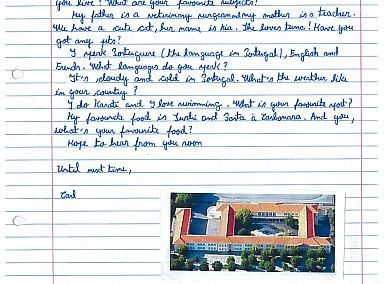 you live? What are your favourite subjects?
My father is a veterinary surgeon and my mother is a teacher.
We have a cute cat, her name is Kia. She loves tuna! Have you
got any pets?
I speak Portuguese (the language in Portugal), English and
French. What languages do you speak?
It's cloudy and cold in Portugal. What's the weather like
in your country?
I do Karate and I love swimming. What is your favourite sport?
My favourite food is Sushi and Pasta à Carbonara. And you,
what's your favourite food?
Hope to hear from you soon
Until next time,